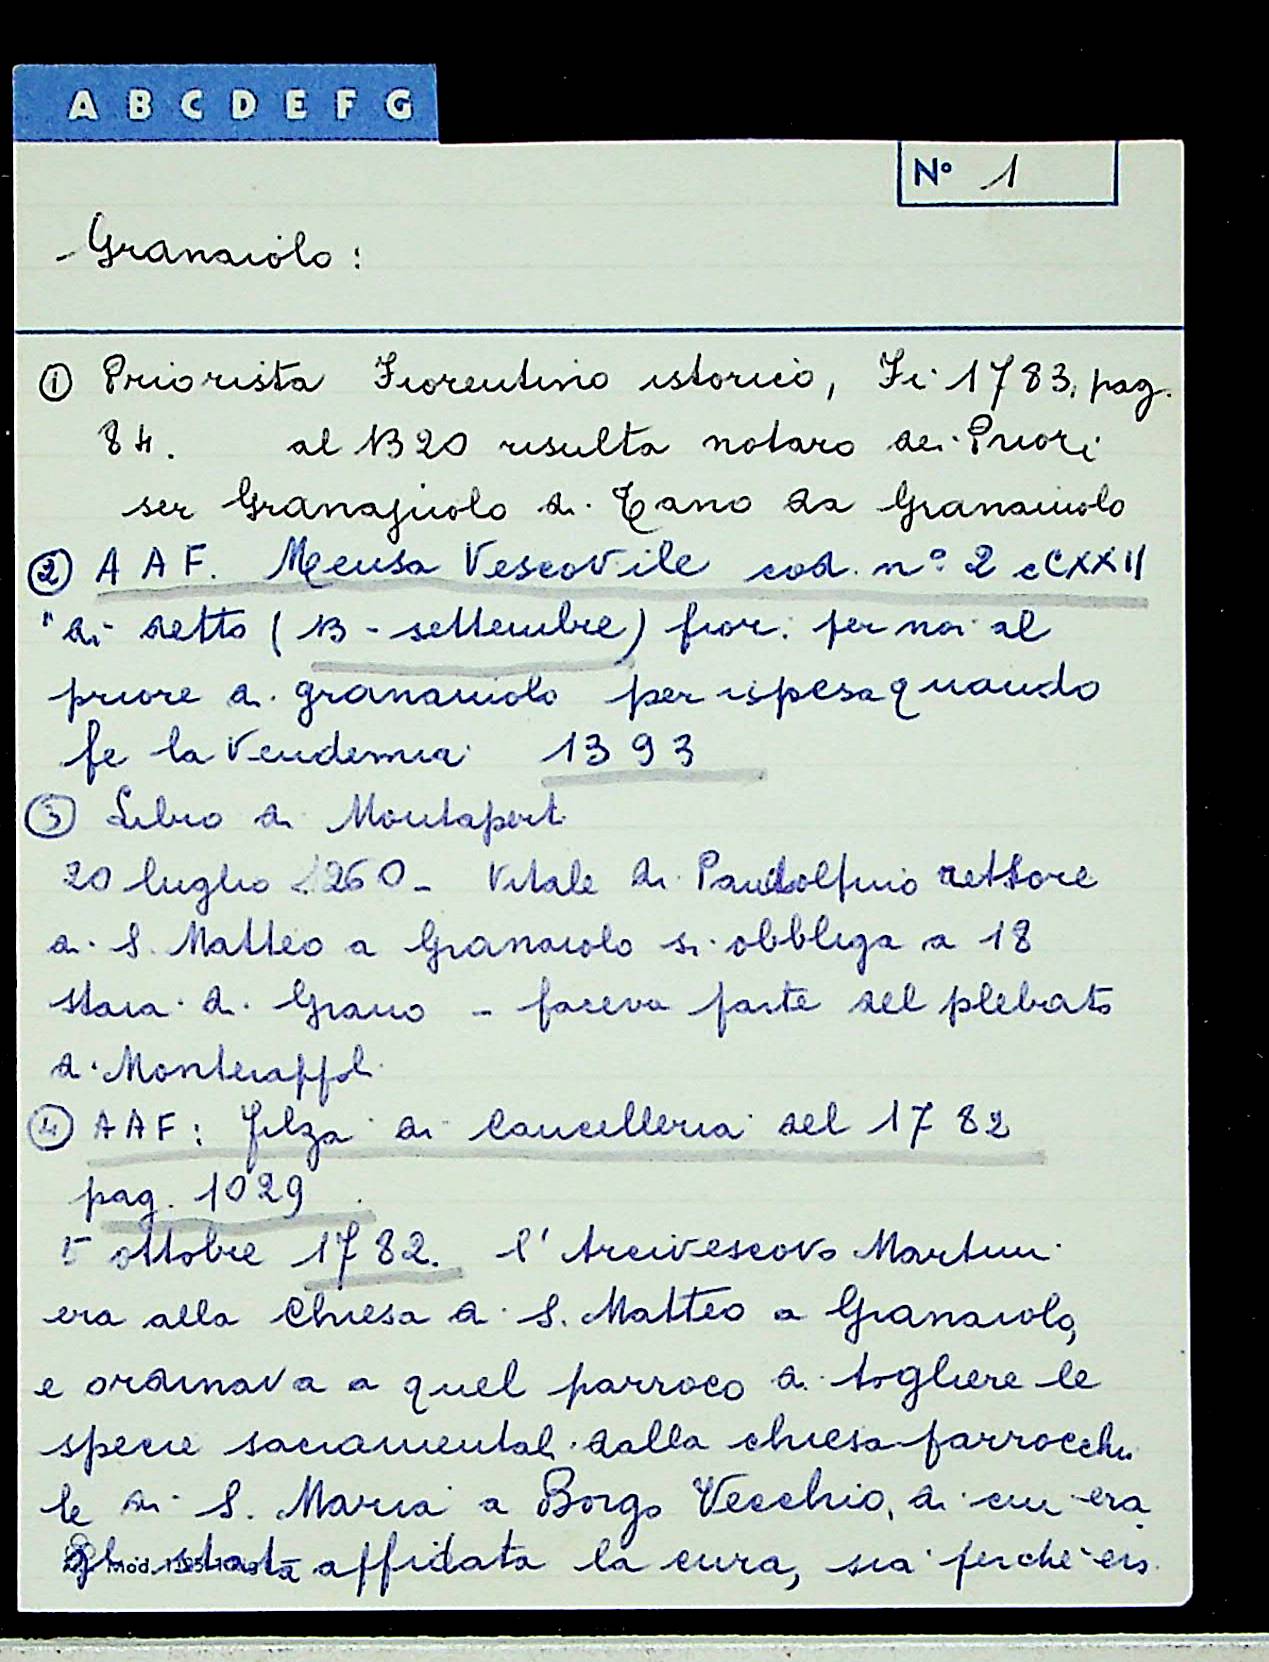 A B C D E F G
N° 1
- Granaiolo :
① Priorista Fiorentino istorico, Fi. 1783, pag.
84. al 1320 risulta notaro dei Priori
ser Granajuolo di Tano da Granaiuolo
② AAF. Mensa Vescovile cod. n° 2 cCXXII
"di detto (13 - settembre) fior: per noi al
priore di granaiuolo per ispesa quando
fe la Vendemia 1393
③ Libro di Montaperti
20 luglio 1260 - Vitale di Pandolfino rettore
di S. Matteo a Granaiolo si obbliga a 18
staia di Grano - faceva parte del plebato
di Monterappoli
④ AAF: filza di Cancelleria del 1782
pag. 1029.
5 ottobre 1782. l'Arcivescovo Martini
era alla Chiesa di S. Matteo a Granaiolo,
e ordinava a quel parroco di togliere le
specie sacramentali dalla chiesa parrocchia
le di S. Maria a Borgo Vecchio, di cui era
gli stata affidata la cura, sia perché ciò